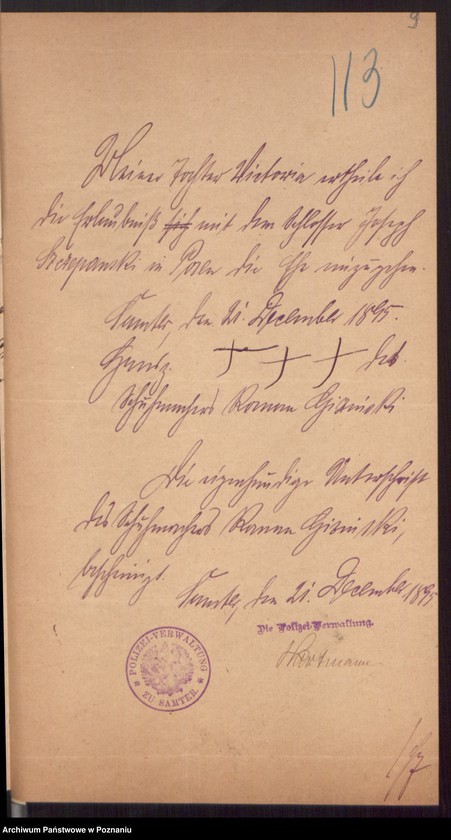 9
113
Meiner Tochter Victoria ertheile ich
die Erlaubniß sich mit dem Schlosser Joseph
Szczepanski in Posen die Ehe einzugehen.
Samter, den 21. December 1895.
Handz. +++ des
Schuhmachers Roman
Die eigenhändige Unterschrift
des Schuhmachers Roman
bescheinigt.
Samter, den 21. December 1895
Die Polizei-Verwaltung.
Hartmann
POLIZEI-VERWALTUNG
ZU SAMTER.
Archiwum Państwowe w Poznaniu